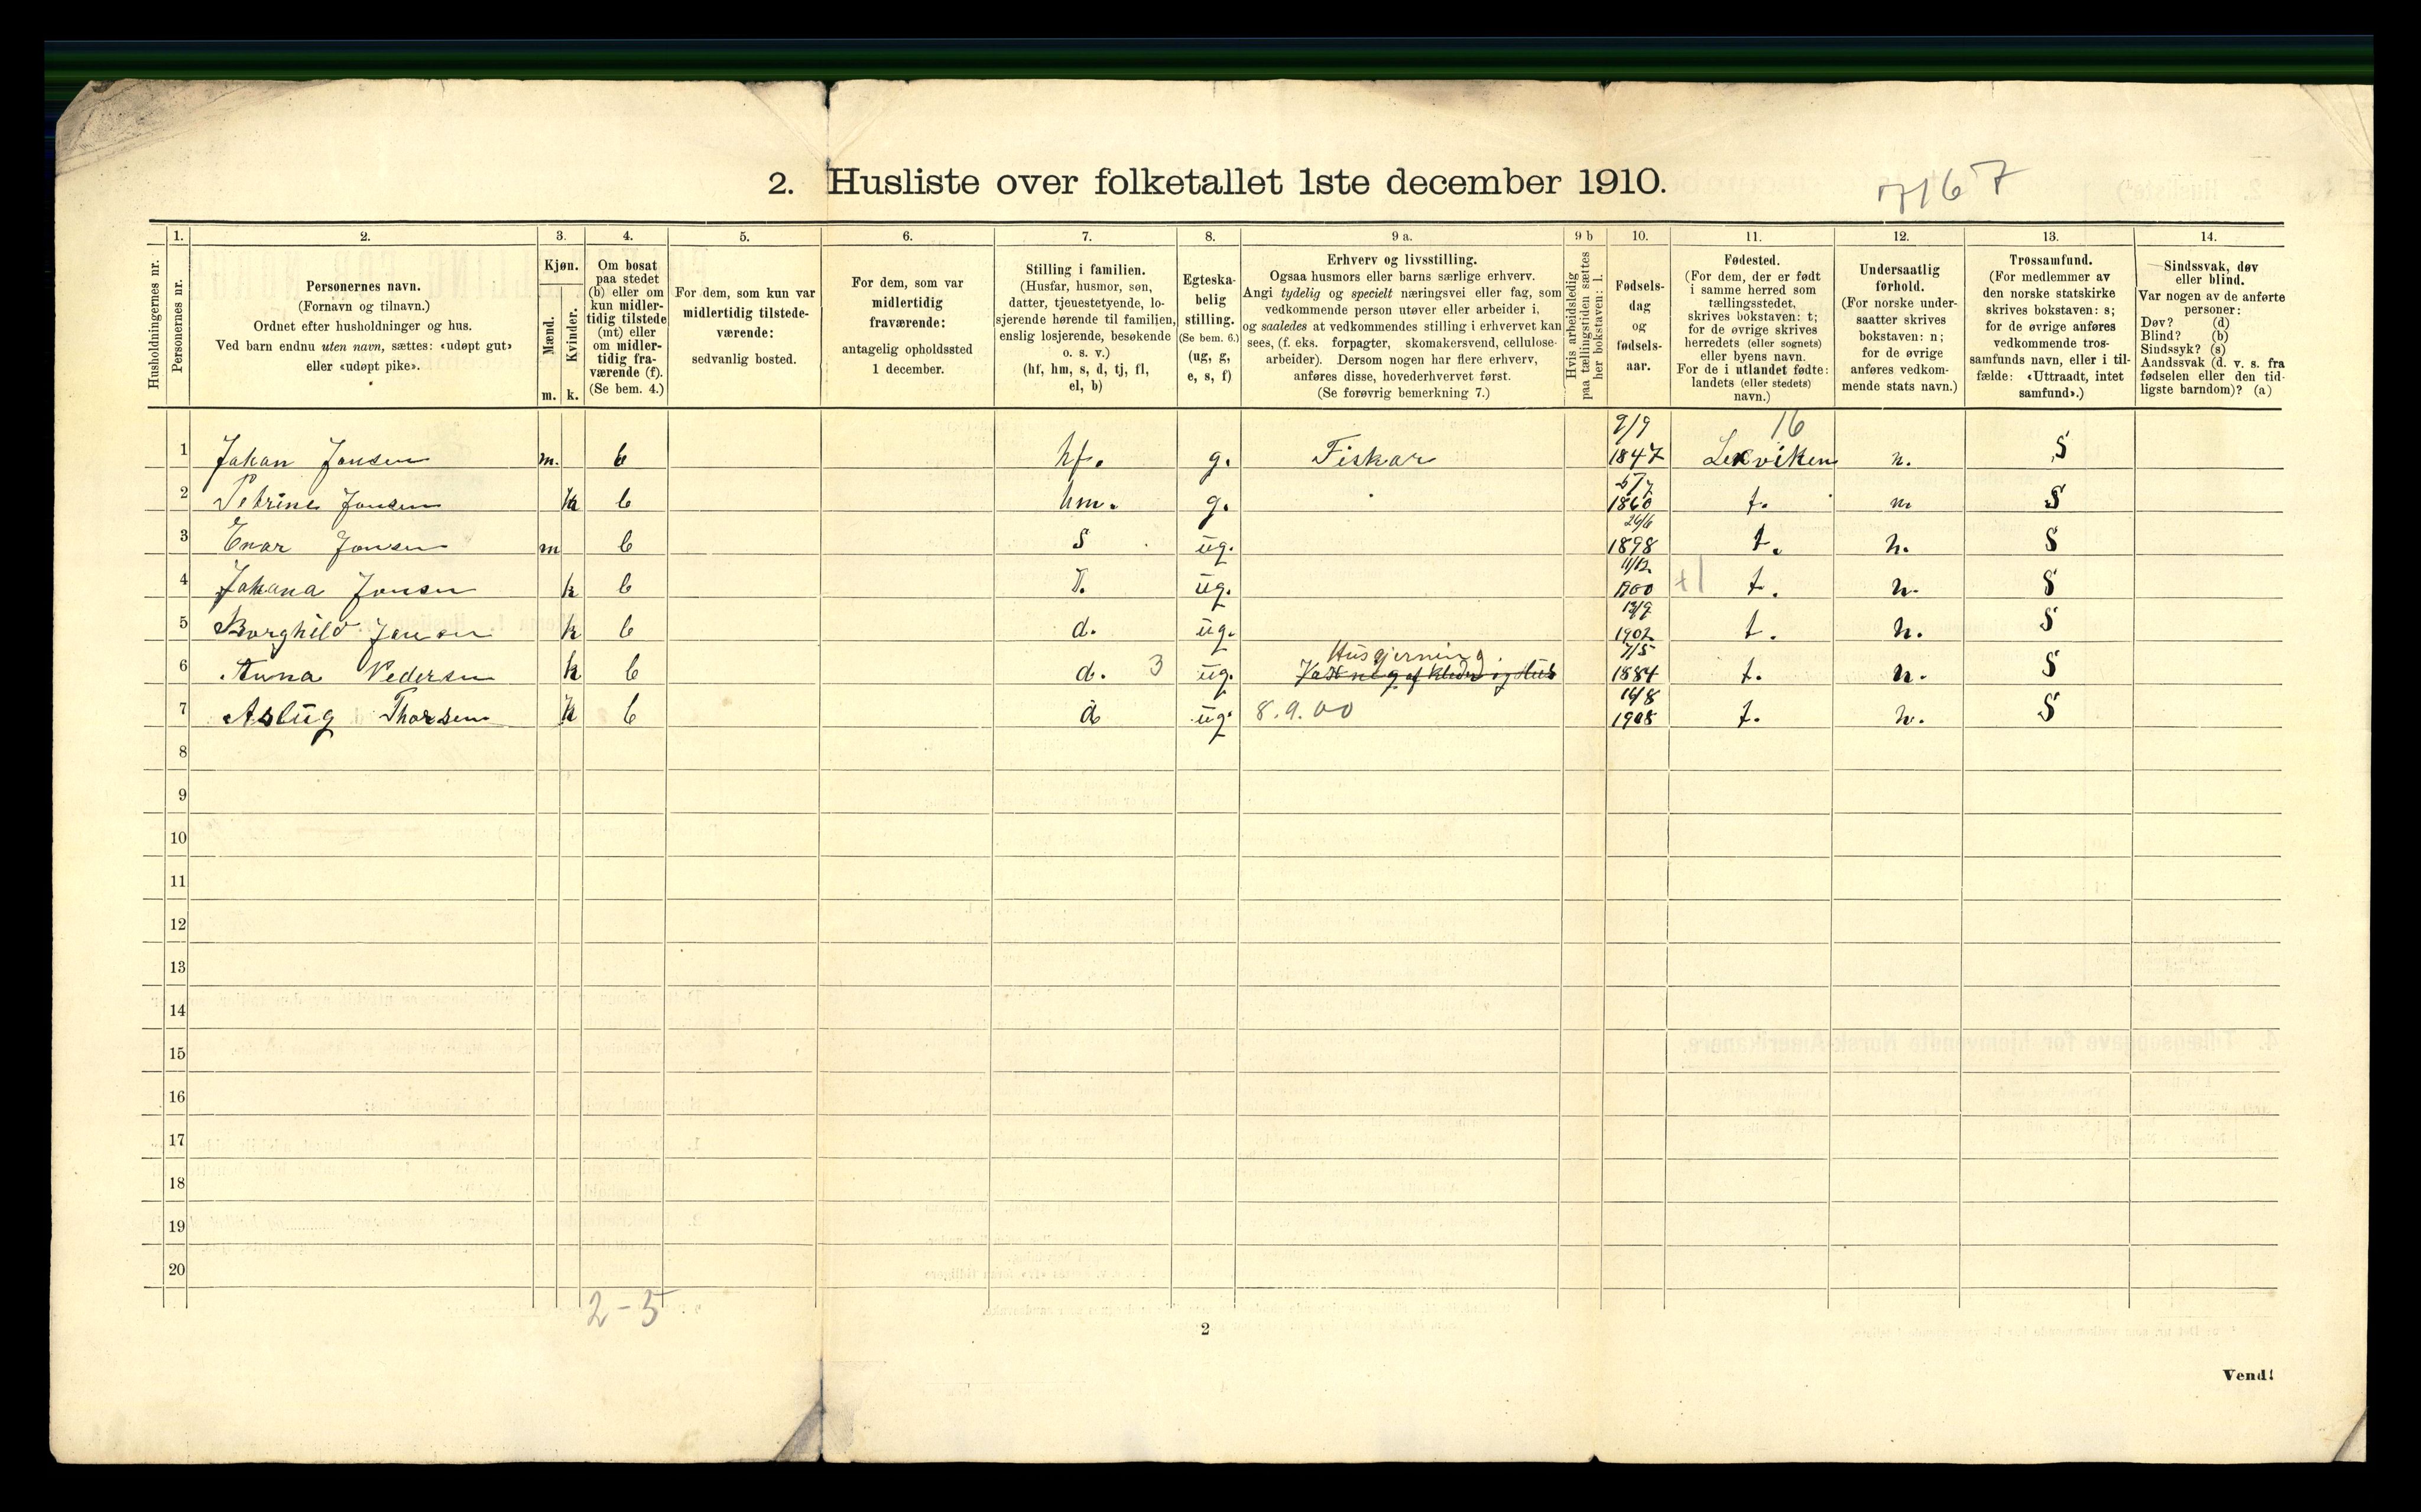 2. Husliste over folketallet 1ste december 1910.
7167
Husholdningernes nr.
1.
Personernes nr.
2.
Personernes navn.
(Fornavn og tilnavn.)
Ordnet efter husholdninger og hus.
Ved barn endnu uten navn, sættes: «udøpt gut»
eller «udøpt pike».
3.
Kjøn.
Mænd.
Kvinder.
m. k.
4.
Om bosat
paa stedet
(b) eller om
kun midler-
tidig tilstede
(mt) eller
om midler-
tidig fra-
værende (f).
(Se bem. 4.)
5.
For dem, som kun var
midlertidig tilstede-
værende:
sedvanlig bosted.
6.
For dem, som var
midlertidig
fraværende:
antagelig opholdssted
1 december.
7.
Stilling i familien.
(Husfar, husmor, søn,
datter, tjenestetyende, lo-
sjerende hørende til familien,
enslig losjerende, besøkende
o. s. v.)
(hf, hm, s, d, tj, fl,
el, b)
8.
Egteska-
belig
stilling.
(Se bem. 6.)
(ug, g,
e, s, f)
9 a.
Erhverv og livsstilling.
Ogsaa husmors eller barns særlige erhverv.
Angi tydelig og specielt næringsvei eller fag, som
vedkommende person utøver eller arbeider i,
og saaledes at vedkommendes stilling i erhvervet kan
sees, (f. eks. forpagter, skomakersvend, cellulose-
arbeider). Dersom nogen har flere erhverv,
anføres disse, hovederhvervet først.
(Se forøvrig bemerkning 7.)
9 b
Hvis arbeidsledig
paa tællingstiden sættes
her bokstaven: l.
10.
Fødsels-
dag
og
fødsels-
aar.
11.
Fødested.
(For dem, der er født
i samme herred som
tællingsstedet,
skrives bokstaven: t;
for de øvrige skrives
herredets (eller sognets)
eller byens navn.
For de i utlandet fødte:
landets (eller stedets)
navn.)
12.
Undersaatlig
forhold.
(For norske under-
saatter skrives
bokstaven: n;
for de øvrige
anføres vedkom-
mende stats navn.)
13.
Trossamfund.
(For medlemmer av
den norske statskirke
skrives bokstaven: s;
for de øvrige anføres
vedkommende tros-
samfunds navn, eller i til-
fælde: «Uttraadt, intet
samfund».)
14.
Sindssvak, døv
eller blind.
Var nogen av de anførte
personer:
Døv? (d)
Blind? (b)
Sindssyk? (s)
Aandssvak (d. v. s. fra
fødselen eller den tid-
ligste barndom)? (a)
9/9 16
1 Johan Jonsen m. b hf. g. Fiskar 1847 Lexviken n. S
5/7
2 Petrine Jonsen k b hm. g. 1860 t. n S
26/6
3 Enar Jonsen m b S ug. 1898 t. n. S
11/12
4 Johana Jonsen k b d. ug. 1900 +1 t. n. S
13/9
5 Borghild Jonsen k b d. ug. 1902 t. n. S
Husgjerning. 7/5
6 Anna Pedersen k b d. 3 ug. 1884 t. n. S
16/8
7 Aslug Thorsen k b d ug. 8.9.00 1908 t. n. S
8
9
10
11
12
13
14
15
16
17
18
19
20
2-5
2
Vend!